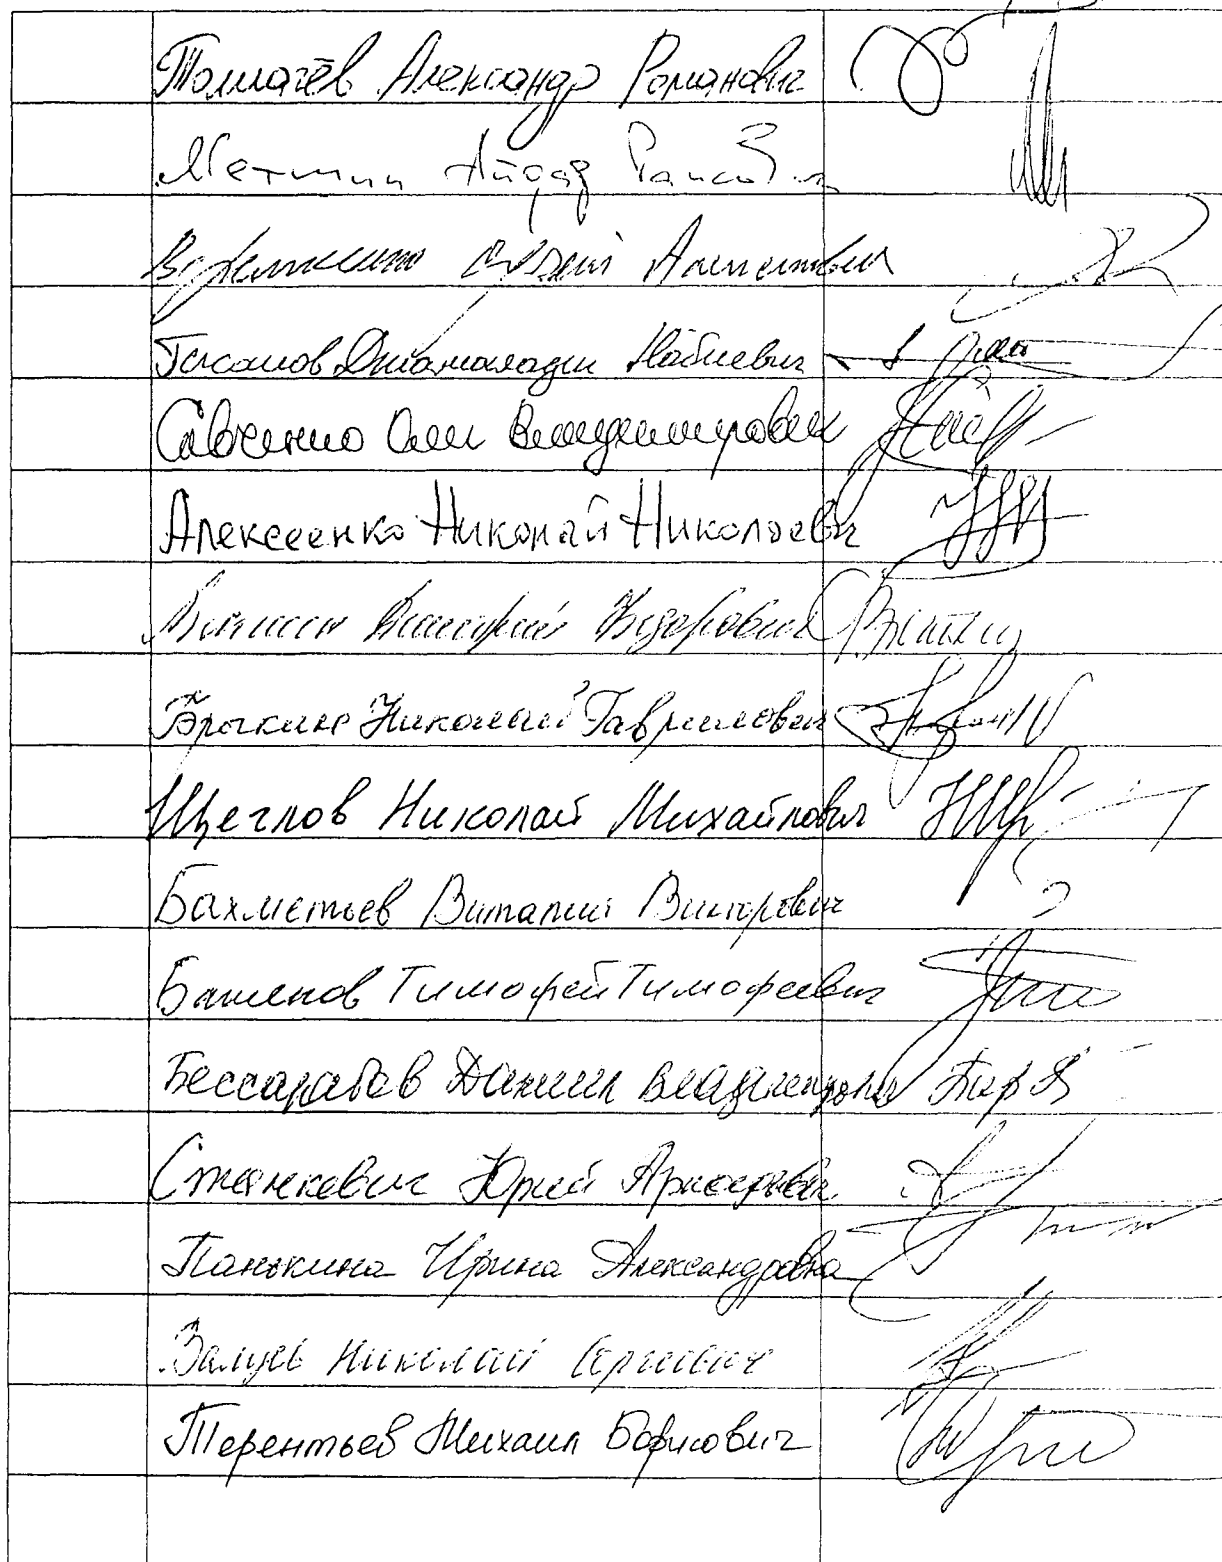 Толмачёв Александр Романович
Метшин Айдар Раисович
Алексеевич
Гасанов Джамаладин Набиевич
Савченко Олег Владимирович
Алексеенко Николай Николаевич
Валерий Фёдорович
Брыкин Николай Гаврилович
Щеглов Николай Михайлович
Бахметьев Виталий Викторович
Баженов Тимофей Тимофеевич
Бессарабов Даниил Владимирович
Станкевич Юрий Аркадьевич
Панькина Ирина Александровна
Залузь Николай Сергеевич
Терентьев Михаил Борисович